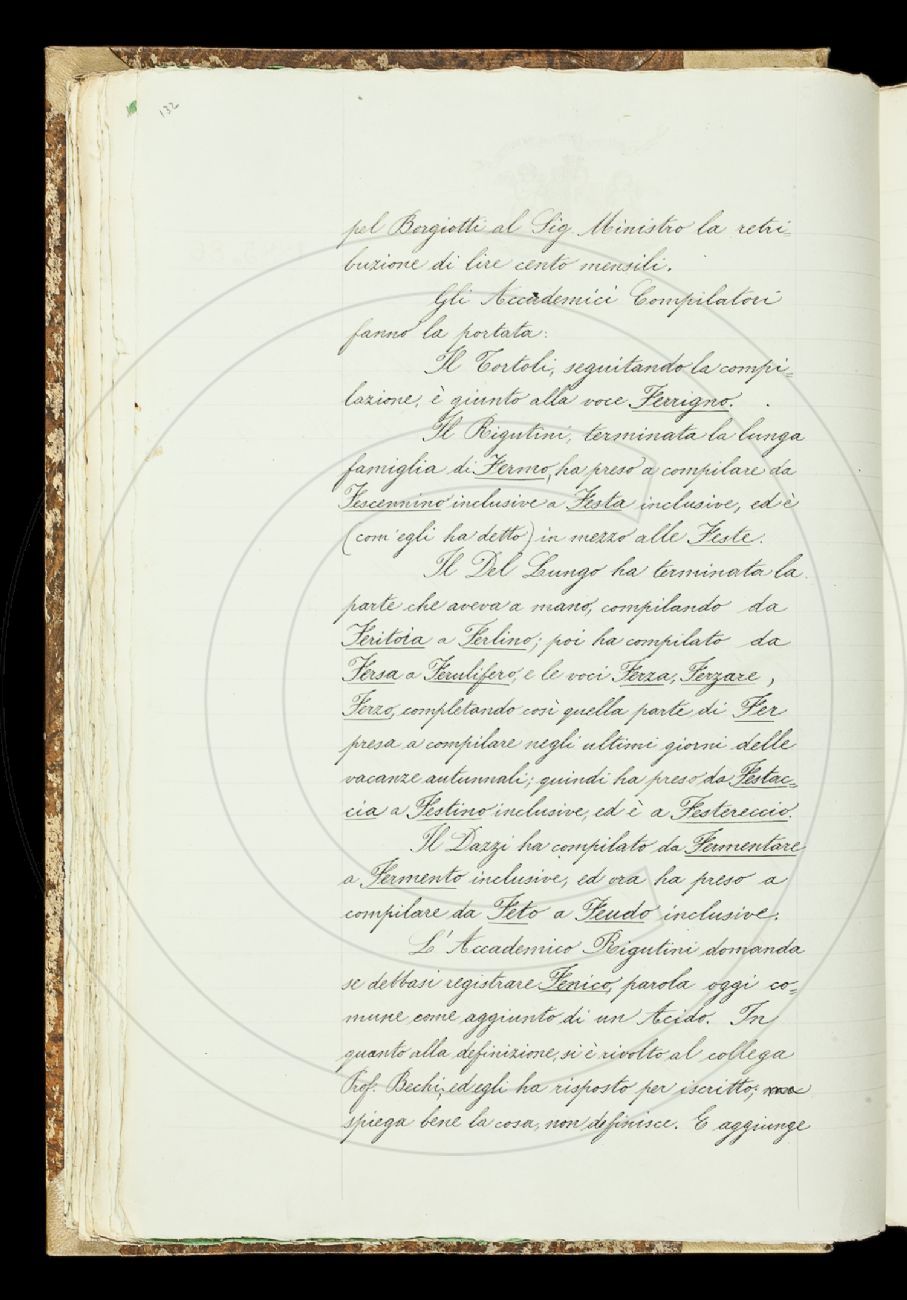 132
pel Borgiotti al Sig Ministro la retri=
buzione di lire cento mensili.
Gli Accademici Compilatori
fanno la portata:
Il Tortoli, seguitando la compi=
lazione, è giunto alla voce Ferrigno.
Il Rigutini, terminata la lunga
famiglia di Fermo, ha preso a compilare da
Fescennino inclusive a Festa inclusive, ed è
(com'egli ha detto) in mezzo alle Feste.
Il Del Lungo ha terminata la
parte che aveva a mano, compilando da
Feritoia a Ferlino; poi ha compilato da
Fersa a Ferulifero, e le voci Ferza, Ferzare,
Ferzo, completando così quella parte di Fer
presa a compilare negli ultimi giorni delle
vacanze autunnali; quindi ha preso da Festac=
cia a Festino inclusive, ed è a Festereccio.
Il Dazzi ha compilato da Fermentare
a Fermento inclusive, ed ora ha preso a
compilare da Feto a Feudo inclusive.
L'Accademico Rigutini domanda
se debbasi registrare Fenico, parola oggi co=
mune come aggiunto di un Acido. In
quanto alla definizione, si è rivolto al collega
Prof. Bechi, ed egli ha risposto per iscritto; ma
spiega bene la cosa, non definisce. E aggiunge